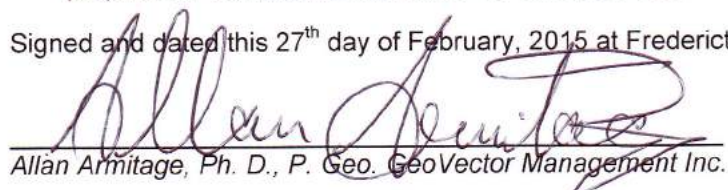 Signed and dated this 27th day of February, 2015 at
Allan Armitage
Allan Armitage, Ph. D., P. Geo. GeoVector Management Inc.